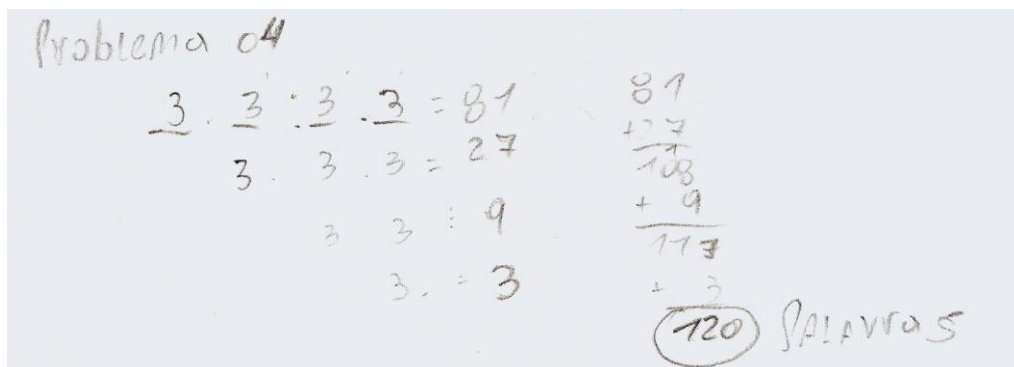 Problema 04
3 . 3 . 3 . 3 = 81
3 . 3 . 3 = 27
3 . 3 = 9
3 . = 3
81
+27
108
+ 9
117
+ 3
120 PALAVras